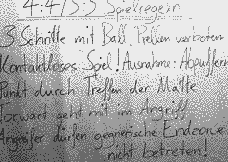 4:4 / 5:5 Spielregeln
3 Schritte mit Ball Prellen verboten
Kontaktloses Spiel! Ausnahme: Abpuffern
Punkt durch Treffen der Matte
Torwart geht mit im Angriff
Angreifer dürfen gegnerische Endzone
nicht betreten!